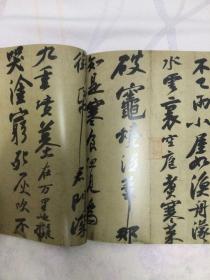 不已雨小屋如漁舟濛
水雲裏空庖煮寒菜
破竈燒濕葦那
知是寒食但見烏
銜帋君門深
九重墳墓在万里也擬
哭塗窮死灰吹不